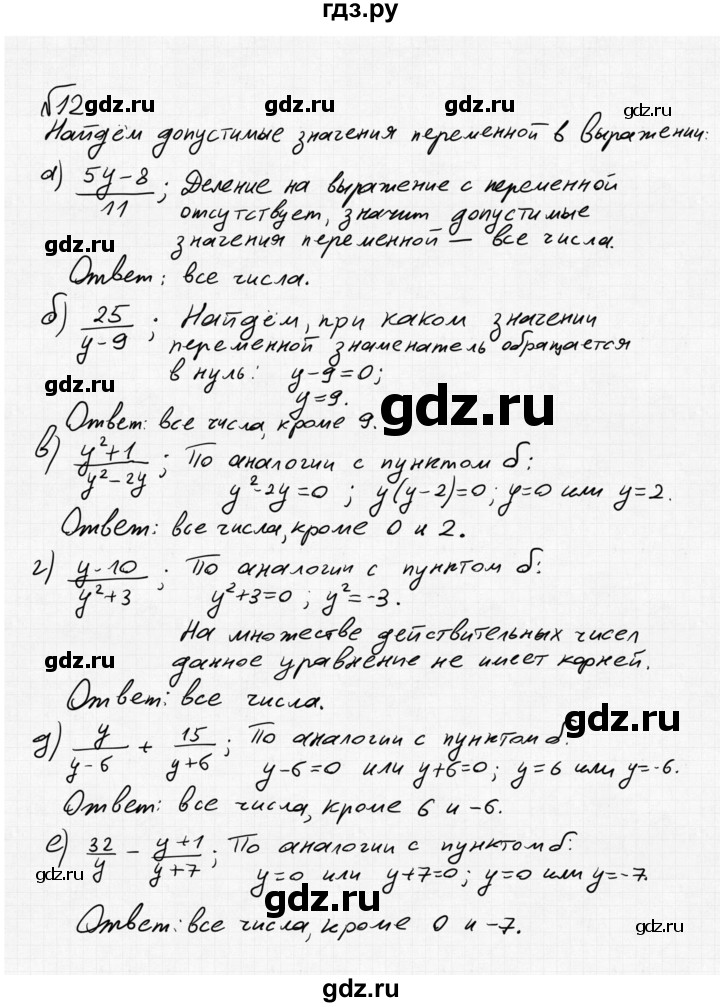 гдз.ру
№12 gdz.ru gdz.ru gdz.ru
Найдём допустимые значения переменной в выражении:
а) (5y-8)/11; Деление на выражение с переменной
отсутствует, значит допустимые
gdz.ru значения переменной — все числа.
Ответ: все числа.
б) 25/(y-9); Найдём, при каком значении
переменной знаменатель обращается
gdz.ru в нуль: y-9=0;
y=9. gdz.ru
Ответ: все числа, кроме 9.
в) (y²+1)/(y²-2y); По аналогии с пунктом б:
y²-2y=0; y(y-2)=0; y=0 или y=2.
Ответ: все числа, кроме 0 и 2.
г) (y-10)/(y²+3); По аналогии с пунктом б:
y²+3=0; y²=-3.
На множестве действительных чисел
gdz.ru данное уравнение не имеет корней.
Ответ: все числа.
gdz.ru
д) y/(y-6) + 15/(y+6); По аналогии с пунктом б:
y-6=0 или y+6=0; y=6 или y=-6.
Ответ: все числа, кроме 6 и -6.
е) 32/y - (y+1)/(y+7); По аналогии с пунктом б:
gdz.ru y=0 или y+7=0; y=0 или y=-7.
gdz.ru gdz.ru
Ответ: все числа, кроме 0 и -7.
gdz.ru